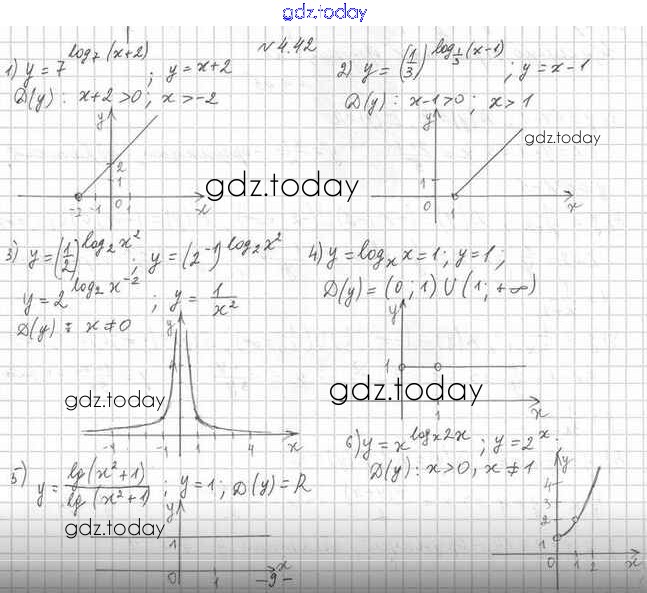 gdz.today
№4.42
1) y = 7^{log_7 (x+2)} ; y = x+2
D(y) : x+2 >0 ; x > -2
y
2
1
-2 -1 0 1 x
2) y = (1/3)^{log_{1/3} (x-1)} ; y = x-1
D(y) : x-1>0 ; x > 1
y
gdz.today
1
0 1 x
gdz.today
3) y = (1/2)^{log_2 x^2} ; y = (2^{-1})^{log_2 x^2}
y = 2^{log_2 x^{-2}} ; y = 1/x^2
D(y) : x ≠ 0
y
gdz.today
-1 0 1 4 x
4) y = log_x x = 1 ; y = 1 ;
D(y) = (0; 1) ∪ (1; +∞)
y
1
gdz.today
1 x
5) y = lg(x^2+1)/lg(x^2+1) ; y = 1 ; D(y) = R
gdz.today
y
1
0 1 x
-9-
6) y = x^{log_x 2x} ; y = 2^x .
D(y) : x > 0, x ≠ 1
y
4
3
2
1
0 1 2 x